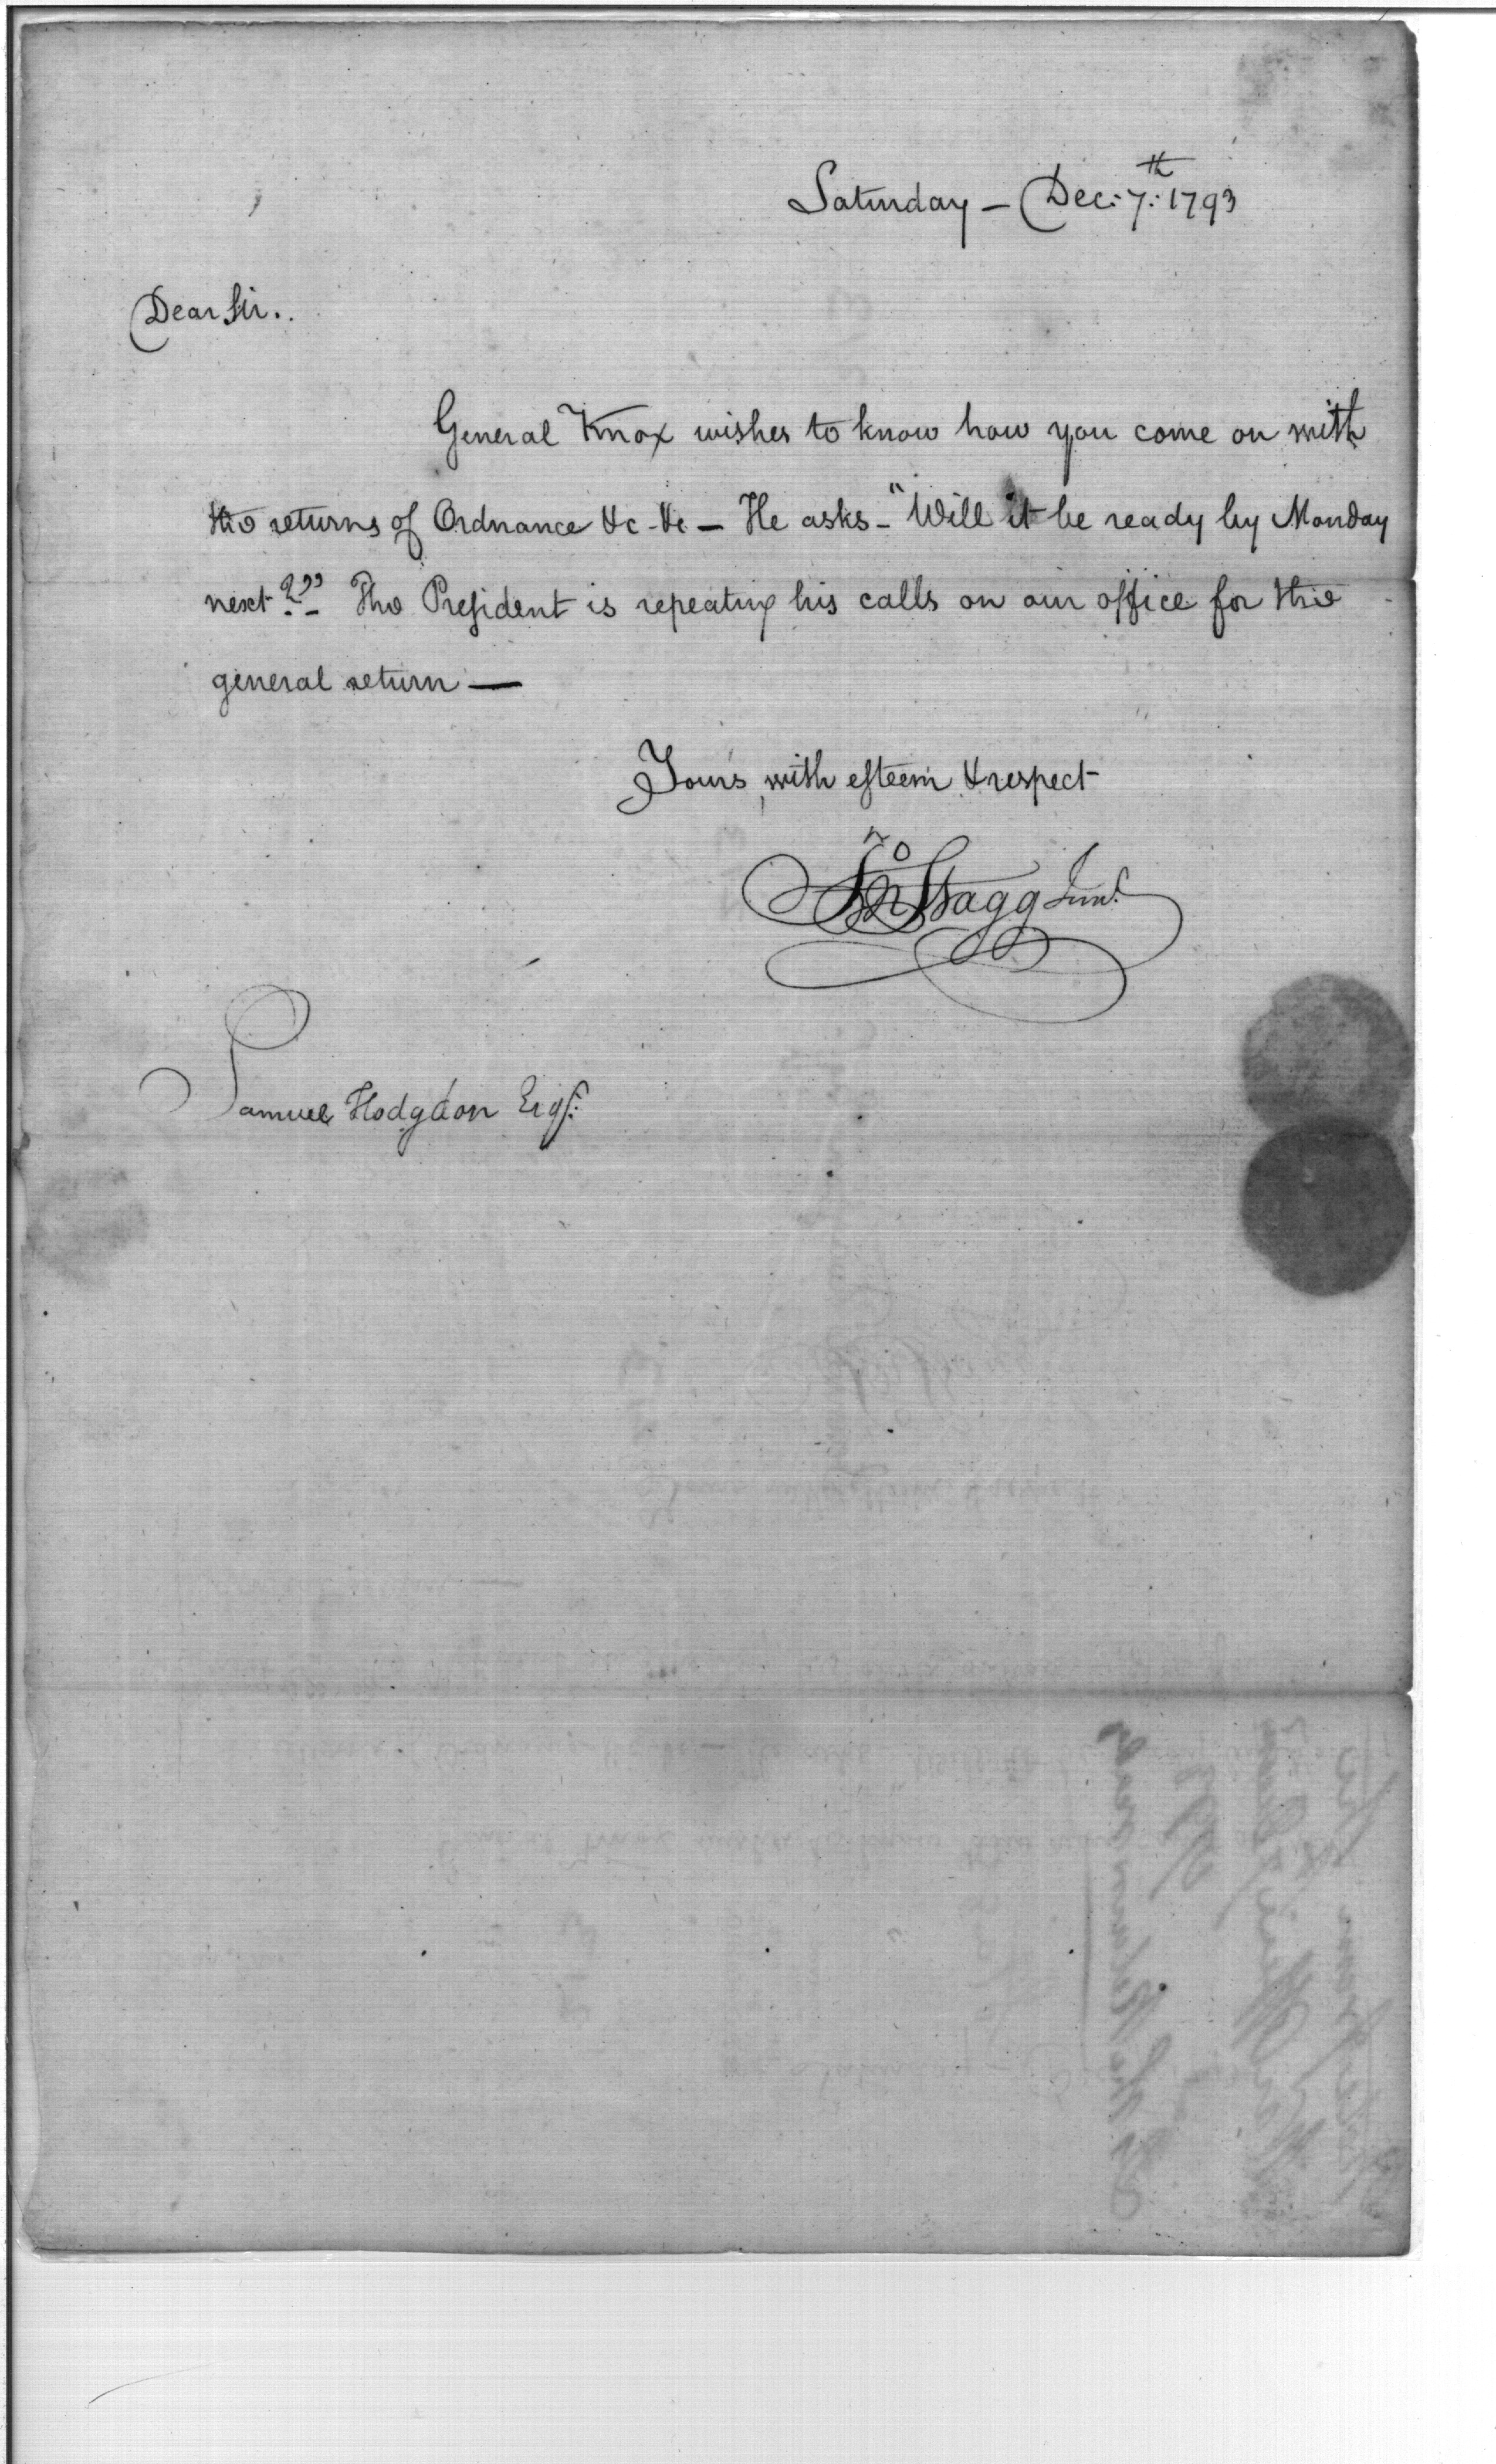 Saturday — Dec: 7th: 1793
Dear Sir..
General Knox wishes to know how you come on with
the returns of Ordnance &c &c — He asks — "Will it be ready by Monday
next?" — The President is repeating his calls on our office for the
general return —
Yours with esteem & respect
Jno Stagg Junr.
Samuel Hodgdon Esqr: